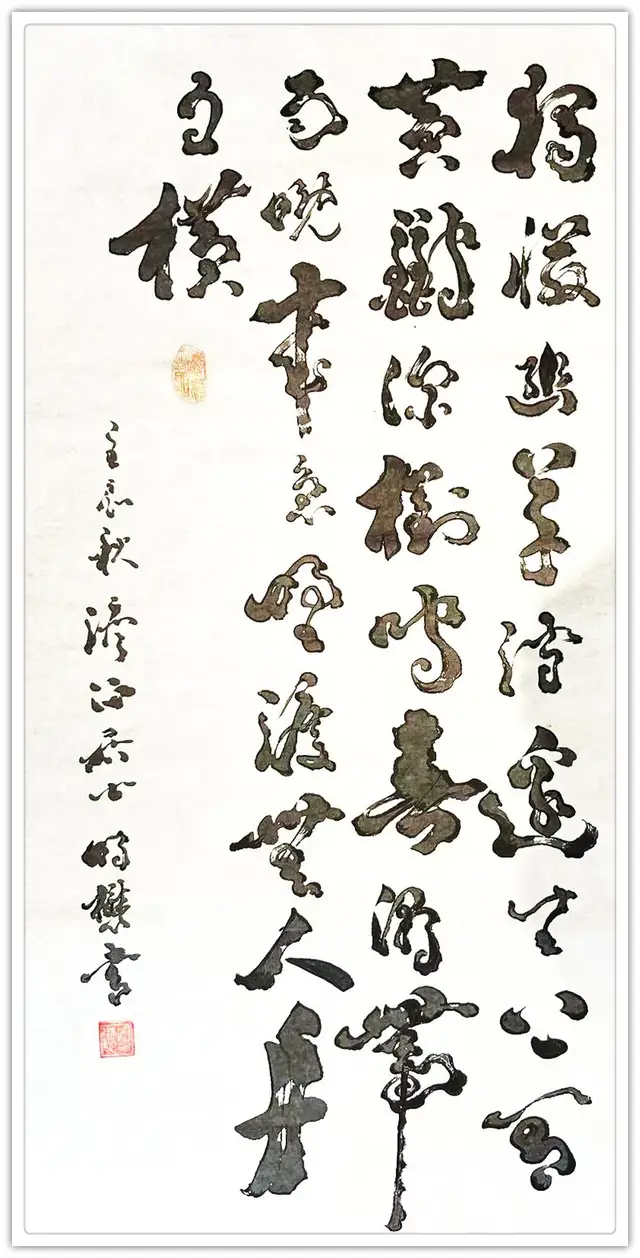 獨憐幽草澗邊生上有
黃鸝深樹鳴春潮帶
雨晚來急野渡無人舟
自橫
秋 時懋書